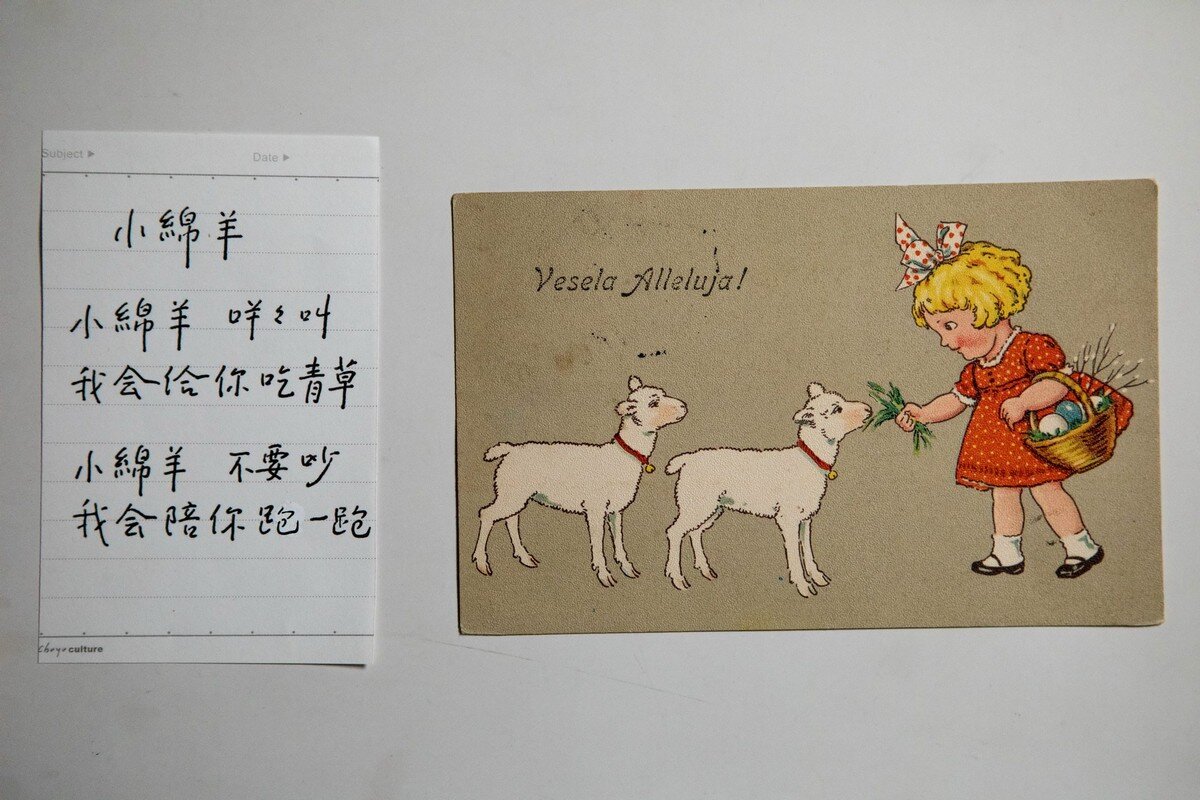 Subject ▶ Date ▶
小綿羊
小綿羊 咩々叫
我会给你吃青草
小綿羊 不要吵
我会陪你跑一跑
choyo culture
Vesela Alleluja!